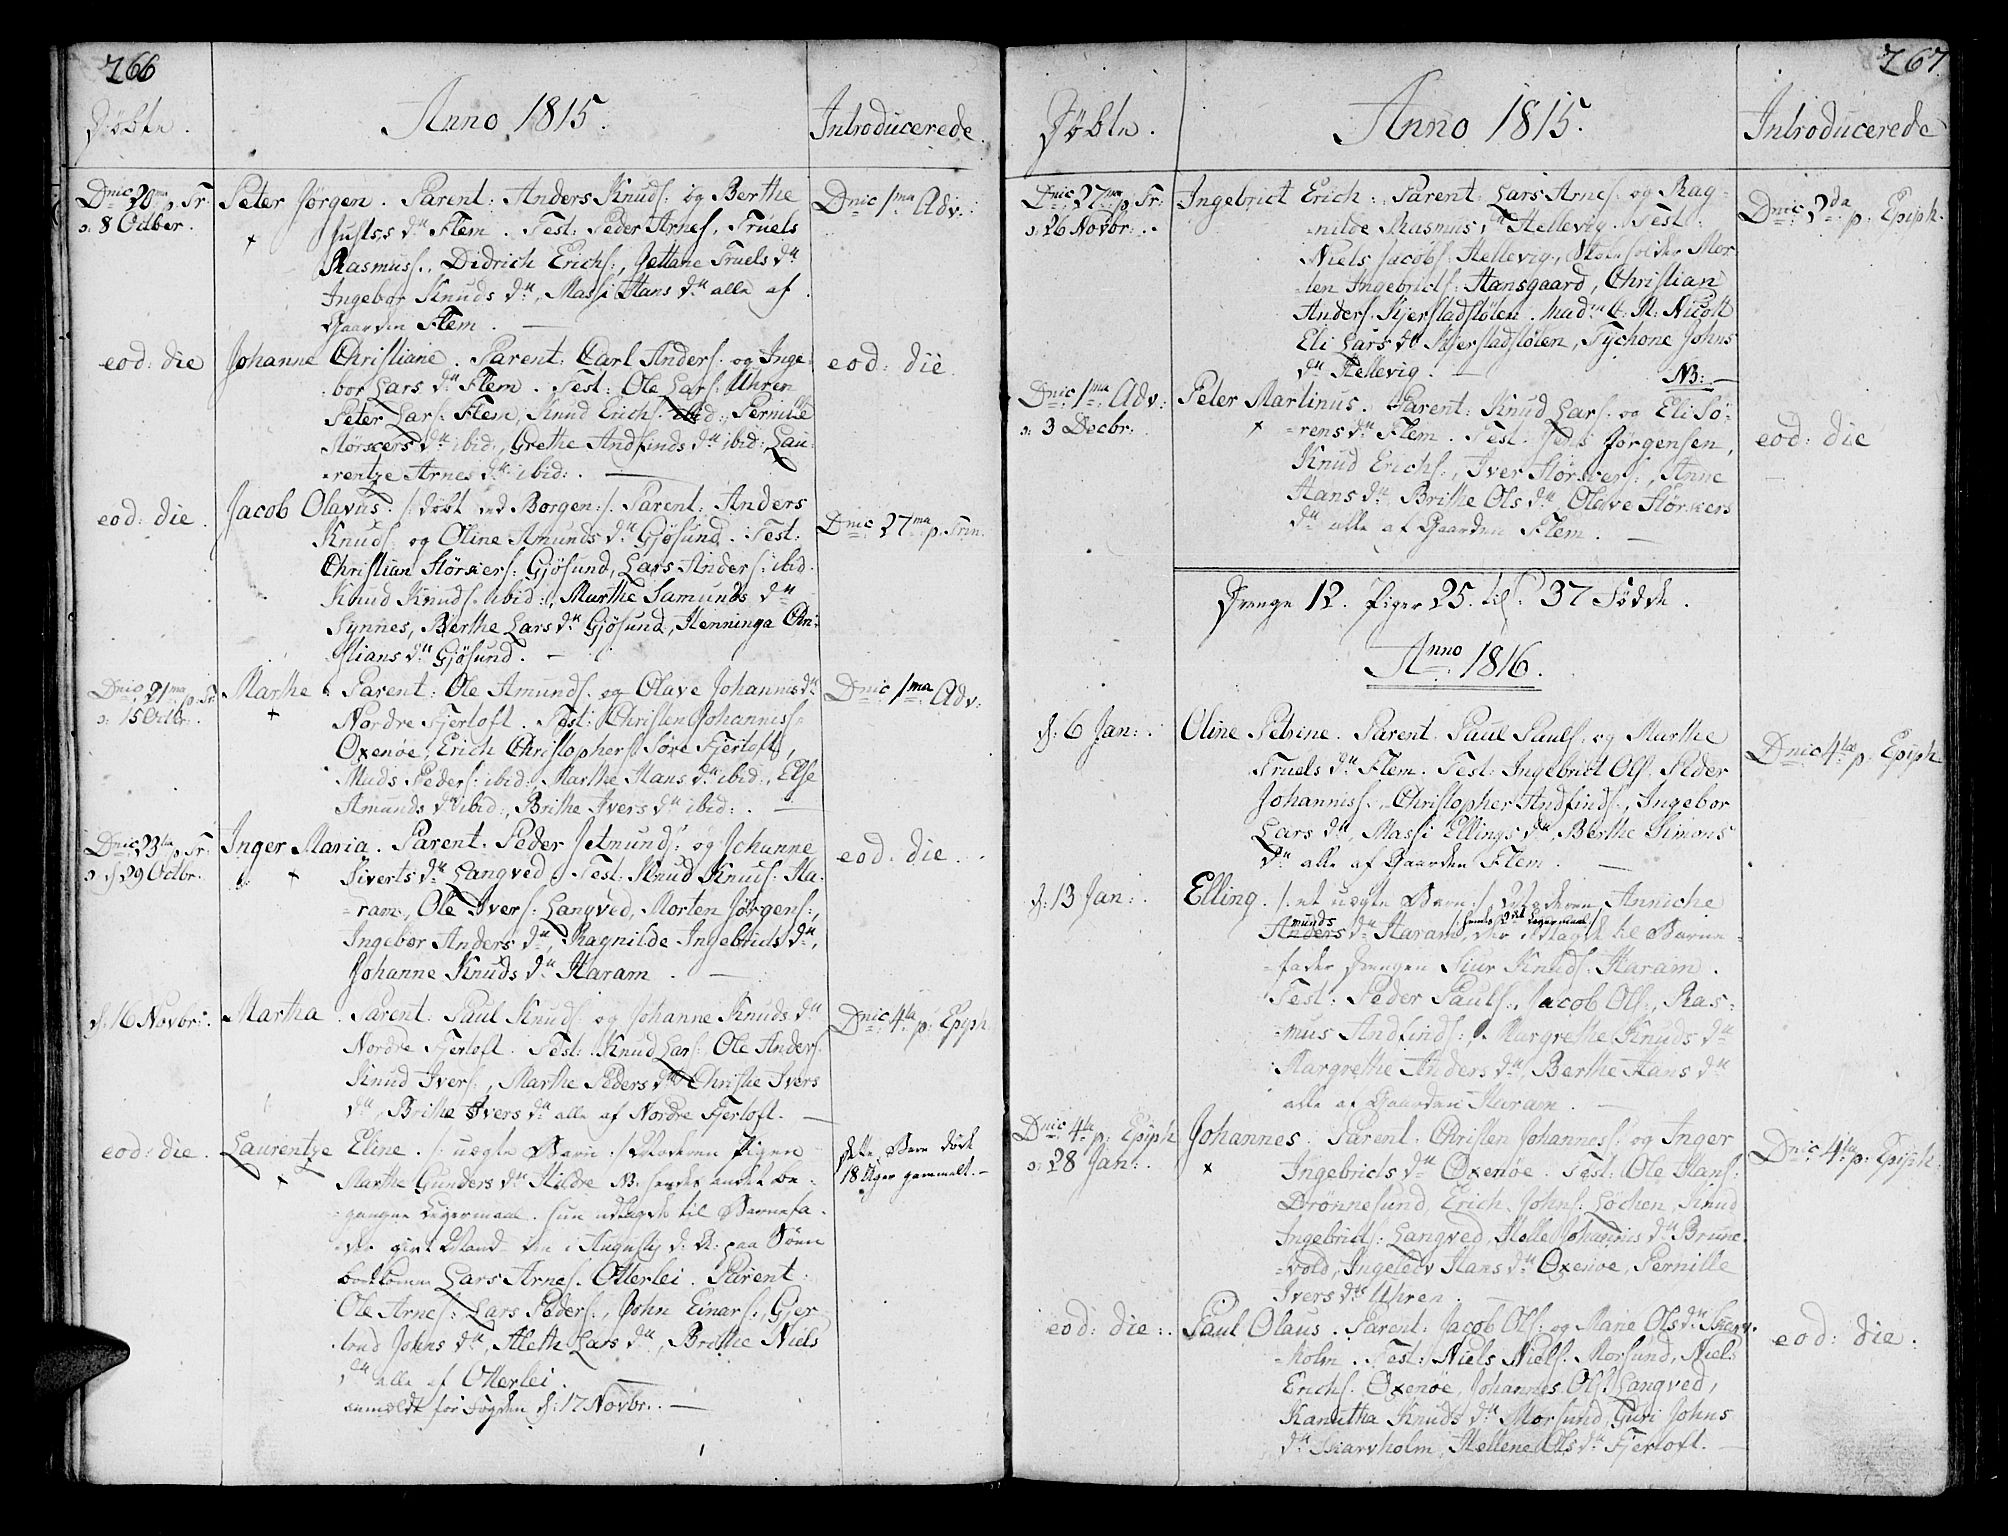 266
Døbte.
Anno 1815.
Introducerede.
Dnic: 20ma p. Tr:
ɔ: 8 Octber.
Peter Jørgen. Parent: Anders Knuds: og Berthe
Justss dtr Flem. Test: Peder Arnes, Truels
Rasmuss:, Didrich Erichs:, Jettane Truels dtr
Ingebor Knuds dtr, Massi Hans dtr alle af
Gaarden Flem.
Dnic 1ma Adv:
eod: die
Johanne Christiane. Parent: Carl Anders: og Inge-
bor Lars dtr Flem. Test: Ole Lars: Uhren
Peter Lars: Flem, Knud Erichs: ibid: Pernille
Størkers dtr ibid:, Grethe Andfinds dtr ibid: Lau-
rentze Arnes dtr ibid:.
eod: die
eod: die.
Jacob Olavus. /: døbt ved Borgen :/. Parent: Anders
Knuds: og Oline Amunds dtr Gjøsund. Test:
Christian Størkers: Gjøsund, Lars Anders: ibid.
Knud Knuds: ibid:, Marthe Samunds dtr
Synnes, Berthe Lars dtr Gjøsund, Henninga Chri-
stians dtr Gjøsund.
Dnic 27ma p. Trin.
Dnic 21ma p. Tr
ɔ: 15 Octbr.
Marthe. Parent: Ole Amunds: og Olave Johannis dtr
Nordre Fjertoft. Test: Christen Johanniss:
Oxenøe, Erich Christophers Søre Fjertoft,
Mads Peders: ibid:, Marthe Hans dtr ibid:, Else
Amunds dtr ibid:, Brithe Ivers dtr ibid:.
Dnic 1ma Adv:
Dnic: 23tia p. Tr:
ɔ: 29 Octbr.
Inger Maria. Parent. Peder Jetmunds: og Johanne
Siverts dtr Langved. Test: Knud Knuds: Ha-
ram, Ole Ivers: Langved, Morten Jørgens:,
Ingebor Anders dtr, Ragnilde Ingebricts dtr,
Johanne Knuds dtr Haram.
eod: die.
d: 16 Novbr:.
Martha. Parent: Paul Knuds: og Johanne Knuds dtr
Nordre Fjertoft. Test: Knud Lars:, Ole Anders:
Knud Ivers:, Marthe Peders dtr Christie Ivers
dtr, Brithe Ivers dtr alle af Nordre Fjertoft.
Dnic: 4ta p. Epiph.
eod: die.
Laurentze Eline. /: uægte Barn :/ Moderen Pigen
Marthe Gunders dtr Hildre NB. hendes andet be-
gangne Legermaal. hun udlagde til Barnefa-
der givt Mand den i August d: A: paa Søen
bortkomne Lars Arnes: Otterlei. Parent:
Ole Arnes:, Lars Peders:, John Einars:, Gjer-
trud Johns dtr, Aleth Lars dtr, Brithe Niels
dtr alle af Otterlei.
anmeldt for Fogden d: 17 Novbr:.
dette Barn døde
18 Uger gammelt.
267
Døbte.
Anno 1815.
Introducerede
Dnic: 27ma p. Tr:
ɔ: 26 Novbr:.
Ingebrict Erich. Parent: Lars Arnes: og Rag-
nilde Rasmus dtr Hellevig. Test:
Niels Jacobs: Hellevig, Skoleholder Mor-
ten Ingebricts: Hansgaard, Christian
Anders: Kjerstadstølen. Madme C. M. Nicolt
Eli Lars dtr Kjerstadstølen, Tychone Johns
dtr Hellevig.
Dnic: 2da p. Epiph.
NB:
Dnic: 1ma Adv:
ɔ: 3 Decbr:
Peter Martinus. Parent: Knud Lars: og Eli Sø-
rens dtr Flem. Test. Jens Jørgensen,
Knud Erichs:, Iver Størkers:, Anne
Hans dtr, Brithe Ols dtr, Olave Størkers
dtr alle af Gaarden Flem.
eod: die
Drenge 12. Piger 25. til: 37 Fødde.
Anno 1816.
d: 6 Jan:.
Oline Petrine. Parent: Paul Pauls: og Marthe
Truels dtr Flem. Test: Ingebrict Ols: Peder
Johanniss:, Christopher Andfinds:, Ingebor
Lars dtr, Massi Ellings dtr, Berthe Simons
dtr alle af Gaarden Flem.
Dnic 4ta p. Epiph.
d: 13 Jan:
Elling. /: et uægte Barn :/ Moderen Anniche
munds /: hendes 2det Legermaal :/
Anders dtr Haram, der udlagde til Barne-
fader Drengen Siur Knuds: Haram.
Test: Peder Pauls:, Jacob Ols:, Ras-
mus Andfinds:, Margrethe Knuds dtr
Margrethe Anders dtr, Berthe Hans dtr
alle af Gaarden Haram.
Dnic: 4ta p. Epiph
ɔ: 28 Jan:.
Johannes. Parent: Christen Johanness: og Inger
Ingebricts dtr Oxenøe. Test: Ole Hans:
Drønnesund, Erich Johns: Løchen, Knud
Ingebricts: Langved, Helle Johannis dtr Brune-
vold, Ingeleev Hans dtr Oxenøe, Pernille
Ivers dtr Uhren.
Dnic: 4ta p. Epiph.
eod: die:.
Paul Olaus. Parent: Jacob Ols: og Marie Ols dtr Skarv-
holm. Test: Niels Niels: Morsund, Niels
Erichs: Oxenøe, Johannes Ols: Langved,
Kanutha Knuds dtr Morsund, Guri Johns
dtr Skarvholm, Hellene Ols dtr Fjertoft.
eod: die.